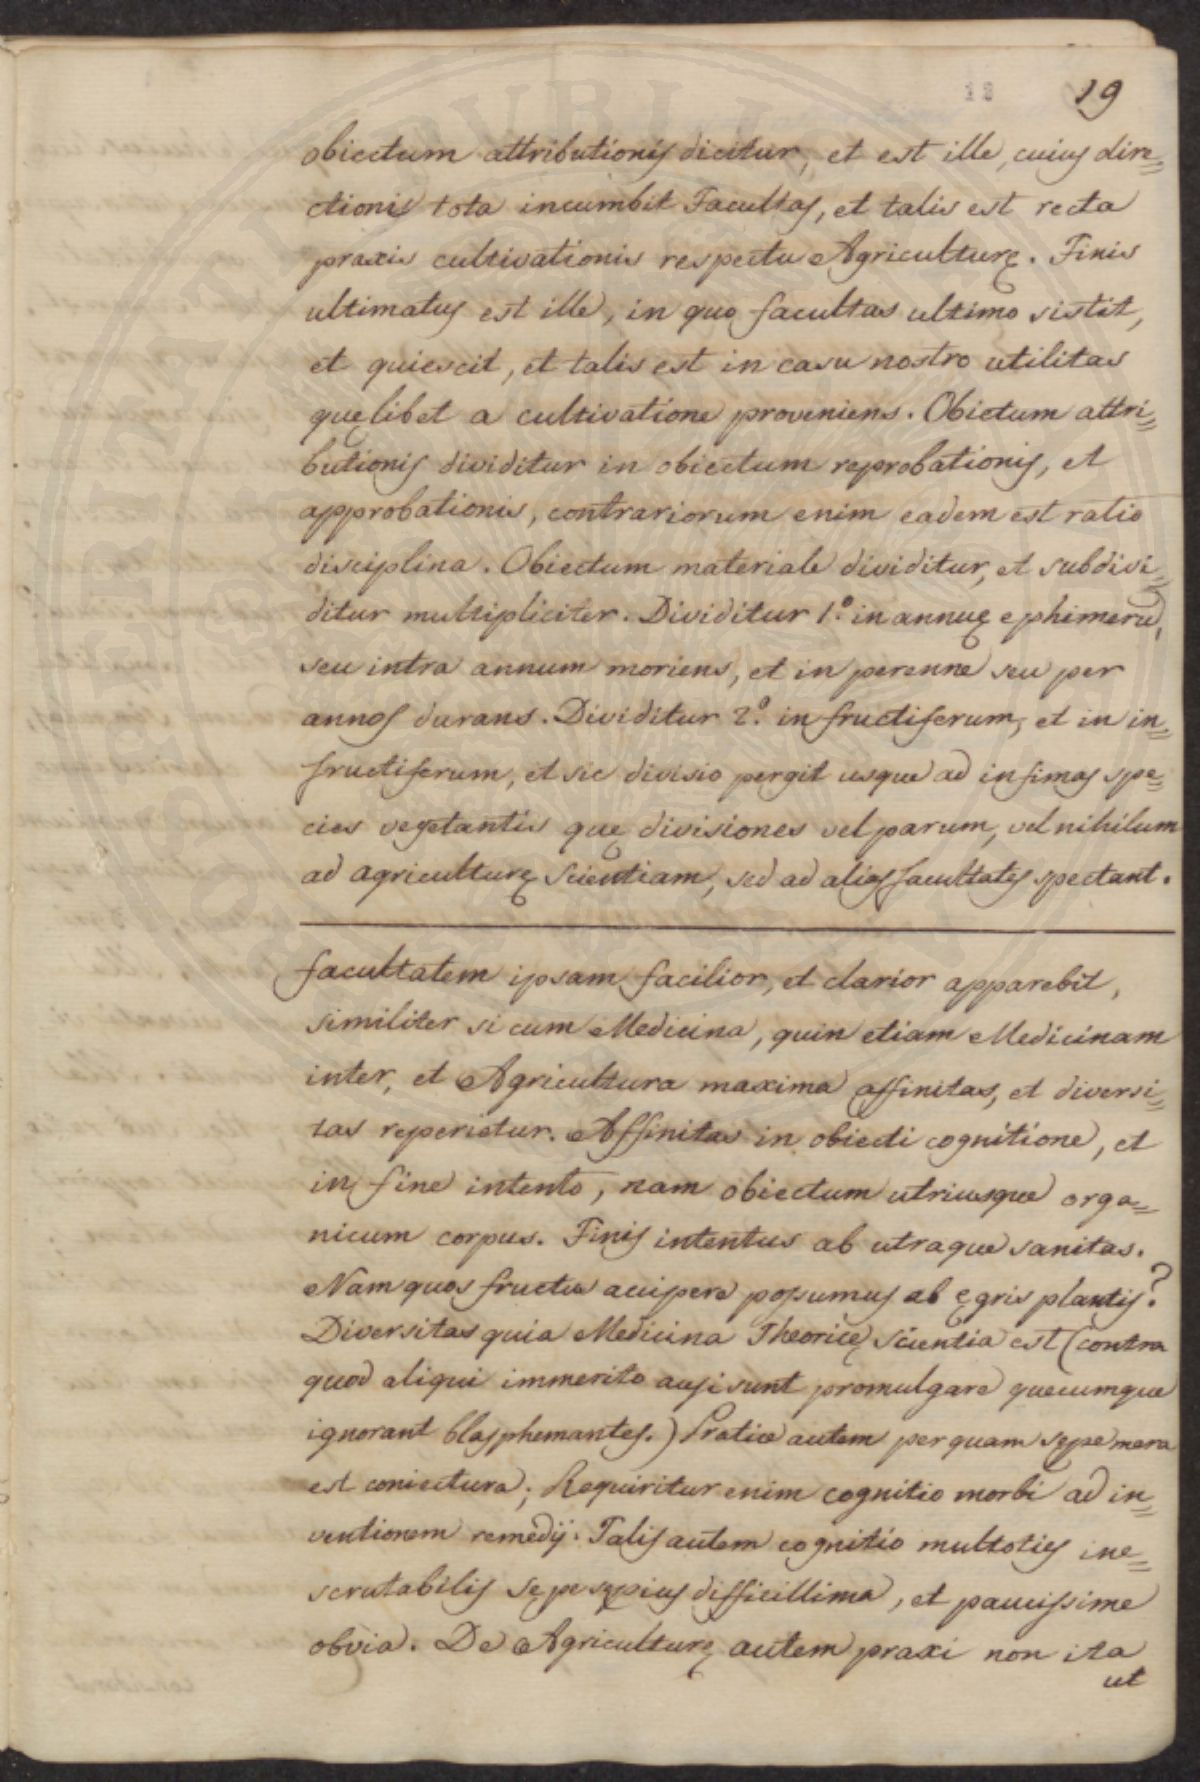 19
obiectum attributionis dicitur, et est ille, cuius dire=
ctionis tota incumbit Facultas, et talis est recta
praxis cultivationis respectu Agriculturę. Finis
ultimatus est ille, in quo facultas ultimo sistit,
et quiescit, et talis est in casu nostro utilitas
quęlibet a cultivatione proveniens. Obiectum attri=
butionis dividitur in obiectum reprobationis, et
approbationis, contrariorum enim eadem est ratio
disciplina. Obiectum materiale dividitur, et subdivi=
ditur multipliciter. Dividitur 1.º in annuę ephimerū,
seu intra annum moriens, et in perenne seu per
annos durans. Dividitur 2.º in fructiferum, et in in=
fructiferum, et sic divisio pergit usque ad infimas spe=
cies vegetantis quę divisiones vel parum, vel nihilum
ad agriculturę scientiam, sed ad alias facultates spectant.
facultatem ipsam facilior, et clarior apparebit,
similiter si cum Medicina, quin etiam Medicinam
inter, et Agricultura maxima affinitas, et diversi=
tas reperietur. Affinitas in obiecti cognitione, et
in fine intento, nam obiectum utriusque orga=
nicum corpus. Finis intentus ab utraque sanitas.
Nam quos fructus accipere possumus ab ęgris plantis?
Diversitas quia Medicina Theoricę scientia est (contra
quod aliqui immerito ausi sunt promulgare quecumque
ignorant blasphemantes.) Pratice autem perquam sępe mera
est coniectura; Requiritur enim cognitio morbi ad in=
ventionem remedij. Talis autem cognitio multoties ine=
scrutabilis sępe sępius difficillima, et paucissime
obvia. De Agriculturę autem praxi non ita
ut